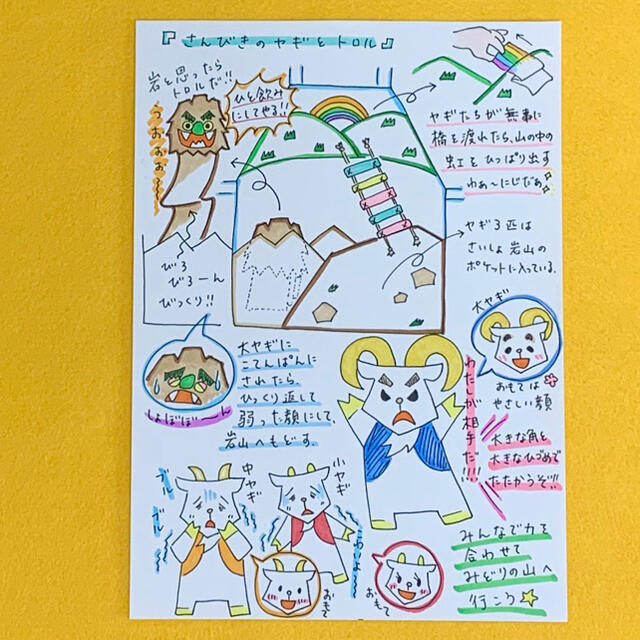 『さんびきのヤギとトロル』
岩と思ったら
トロルだ!!
ひと飲み
にしてやる!!
うおおおぉ
ヤギたちが無事に
橋を渡れたら、山の中の
虹をひっぱり出す
わぁ〜にじだぁ
びろ
びろーん
びっくり!!
ヤギ3匹は
さいしょ岩山の
ポケットに入っている。
大ヤギ
おもては
やさしい顔
大ヤギに
こてんぱんに
されたら、
ひっくり返して
弱った顔にして、
岩山へもどす。
しょぼぼーーん
わたしが相手だ!!!!
大きな角と
大きなひづめで
たたかうぞ!!
中ヤギ
ブルブル
小ヤギ
おもて
おもて
みんなで力を
合わせて
みどりの山へ
行こう☆